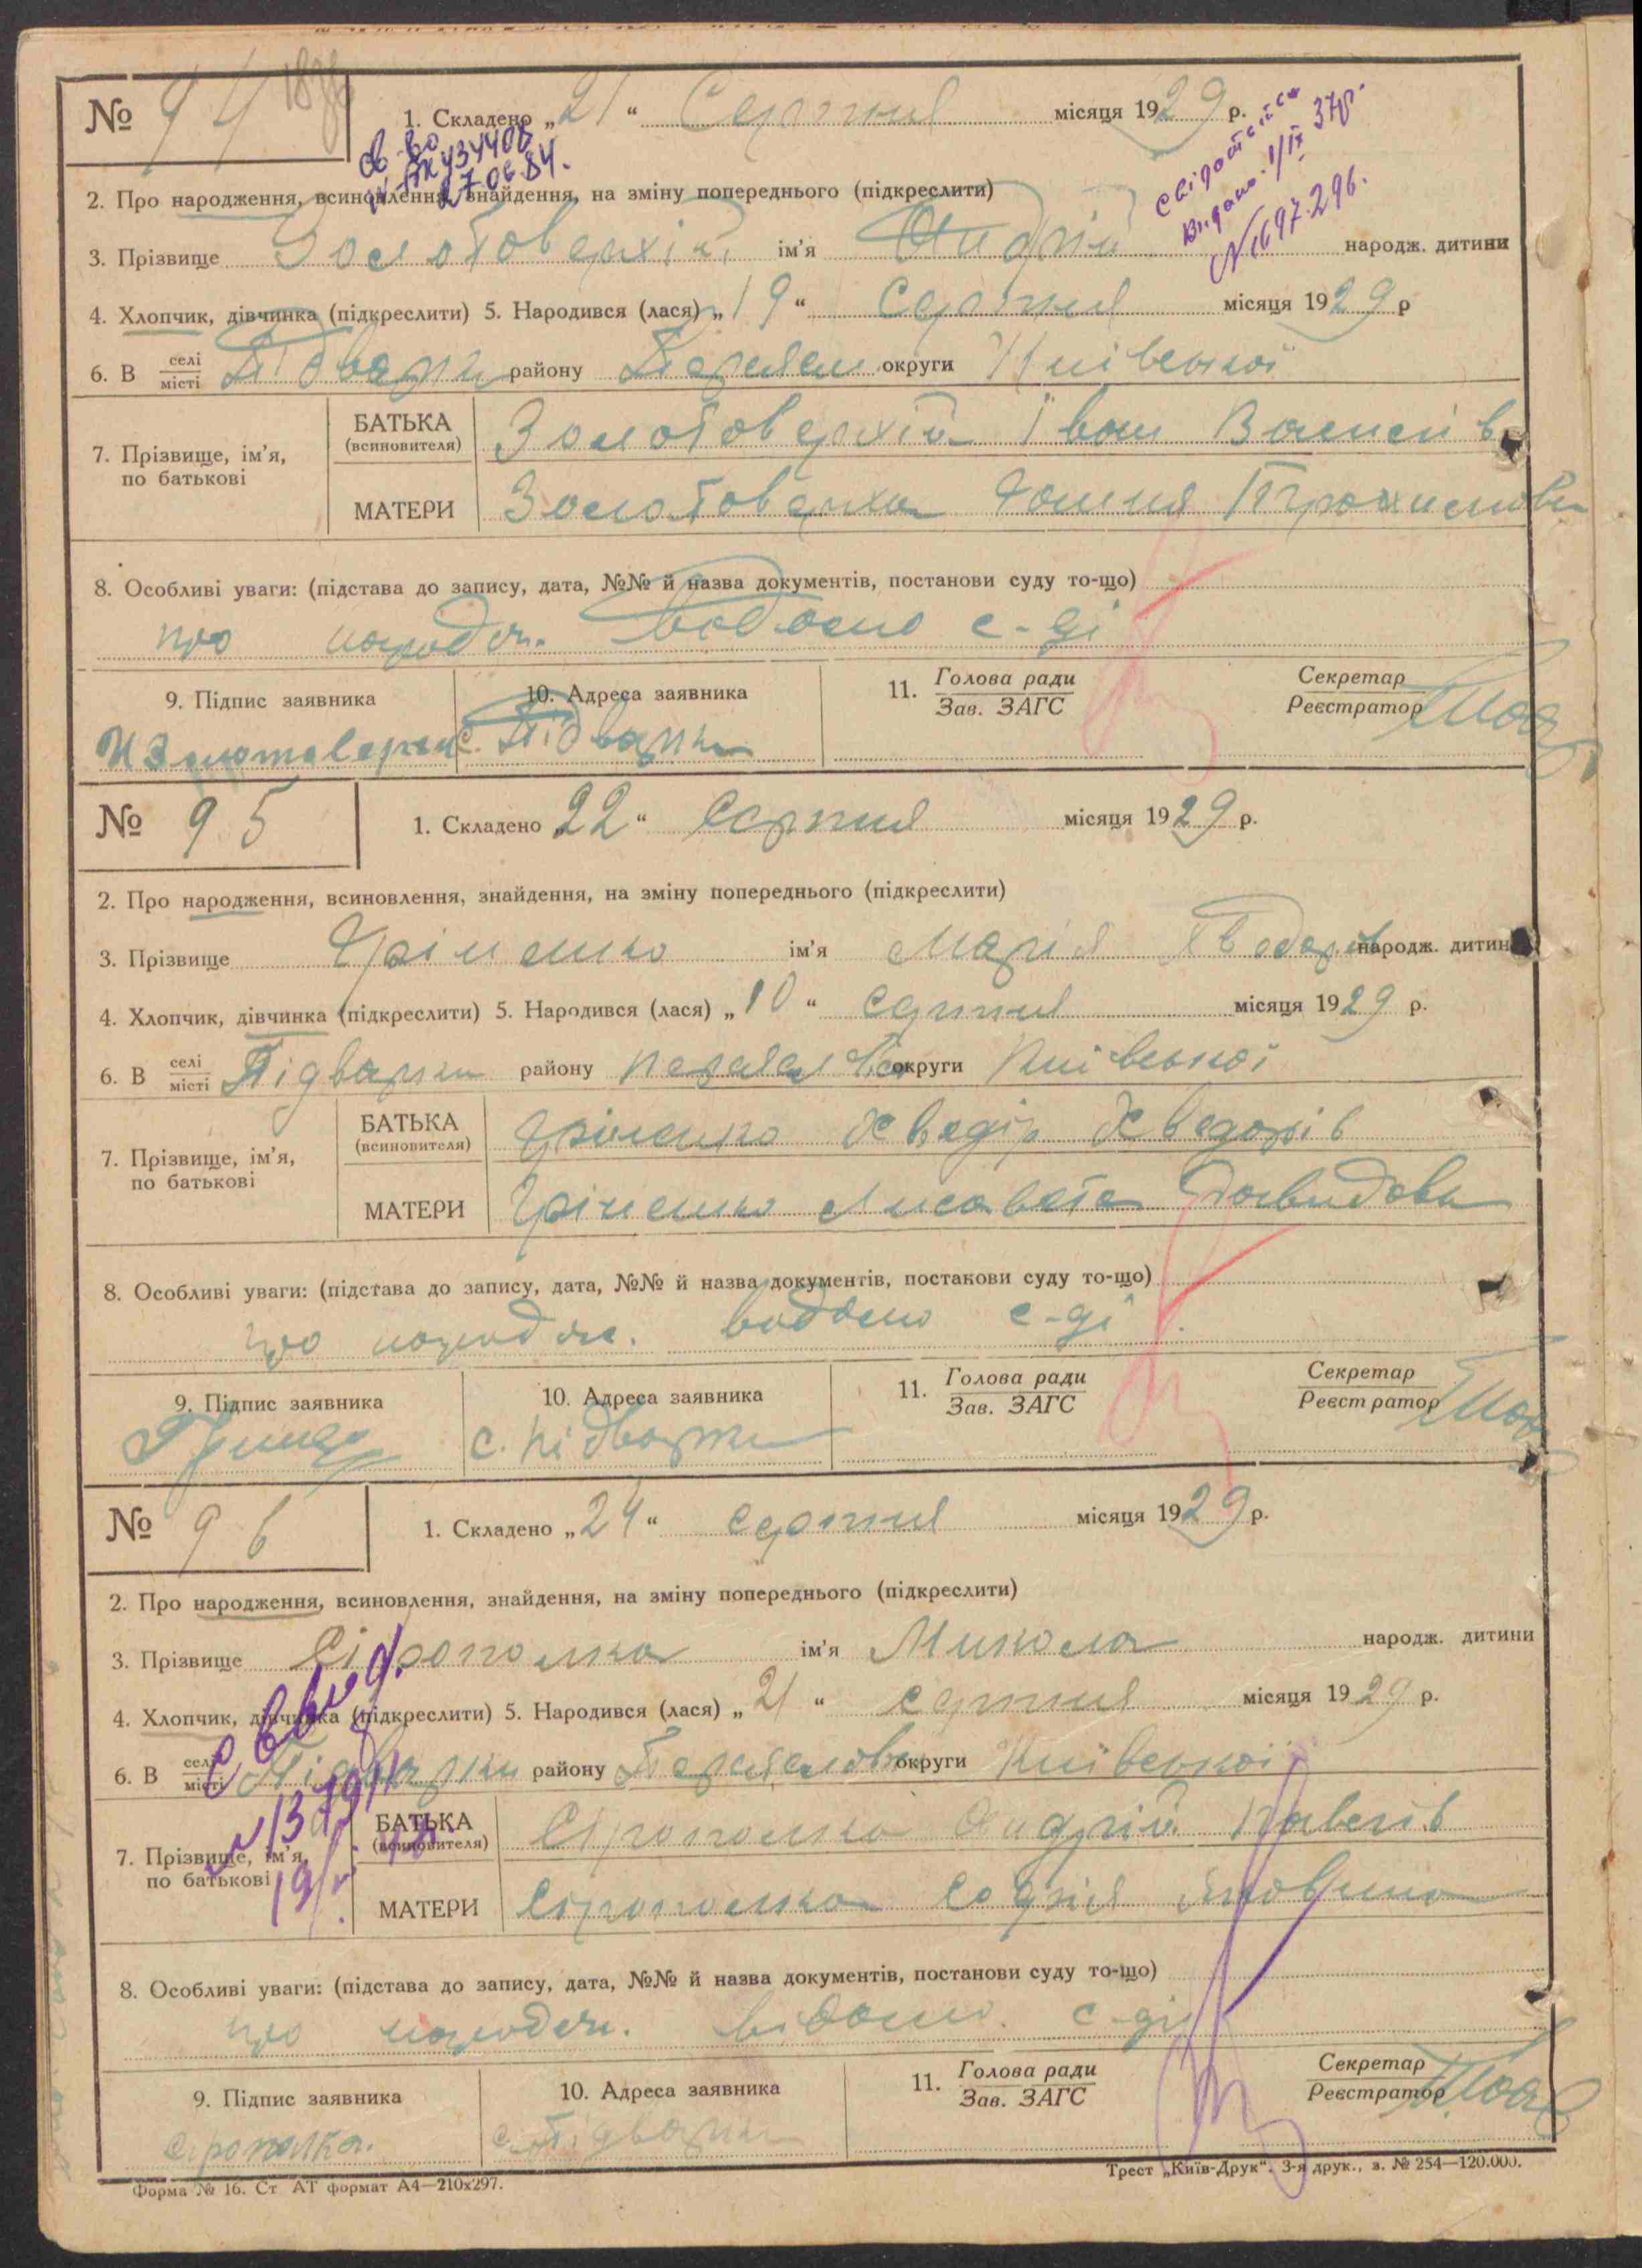 № 94
1. Складено „21“ Серпня місяця 1929 р.
св-во
27.06.84.
Свідоцтво
Видано 1/IX 37р.
N 1697296.
2. Про народження, всиновлення, знайдення, на зміну попереднього (підкреслити)
3. Прізвище Золотоверхій ім'я Андрій народж. дитини
4. Хлопчик, дівчинка (підкреслити) 5. Народився (лася) „19“ Серпня місяця 1929 р
6. В селі/місті Підварки району Переяслав округи Київської
7. Прізвище, ім'я, по батькові
БАТЬКА (всиновителя) Золотоверхій Іван Василів
МАТЕРИ Золотоверха
8. Особливі уваги: (підстава до запису, дата, №№ й назва документів, постанови суду то-що)
про народж. с-ді
9. Підпис заявника
10. Адреса заявника
11. Голова ради/Зав. ЗАГС
Секретар/Реєстратор
И Золотоверхи с. Підварки
№ 95
1. Складено „22“ серпня місяця 1929 р.
2. Про народження, всиновлення, знайдення, на зміну попереднього (підкреслити)
3. Прізвище Гріненко ім'я Марія народж. дитини
4. Хлопчик, дівчинка (підкреслити) 5. Народився (лася) „10“ серпня місяця 1929 р.
6. В селі/місті Підварки району округи Київської
7. Прізвище, ім'я, по батькові
БАТЬКА (всиновителя) Хведір Хведорів
МАТЕРИ Лисавета Давидова
8. Особливі уваги: (підстава до запису, дата, №№ й назва документів, постанови суду то-що)
про народж. с-ді
9. Підпис заявника
10. Адреса заявника
11. Голова ради/Зав. ЗАГС
Секретар/Реєстратор
с. Підварки
№ 96
1. Складено „24“ серпня місяця 1929 р.
2. Про народження, всиновлення, знайдення, на зміну попереднього (підкреслити)
3. Прізвище Сірополка ім'я Микола народж. дитини
4. Хлопчик, дівчинка (підкреслити) 5. Народився (лася) „21“ серпня місяця 1929 р.
6. В селі/місті Підварки району округи Київської
7. Прізвище, ім'я, по батькові
БАТЬКА (всиновителя) Сірополко Андрій Павлів
МАТЕРИ Сірополка
8. Особливі уваги: (підстава до запису, дата, №№ й назва документів, постанови суду то-що)
про народж. видано с-ді
9. Підпис заявника
10. Адреса заявника
11. Голова ради/Зав. ЗАГС
Секретар/Реєстратор
Сірополка. с. Підварки
Форма № 16. Ст АТ формат А4—210х297.
Трест „Київ-Друк“. 3-я друк., з. № 254—120.000.